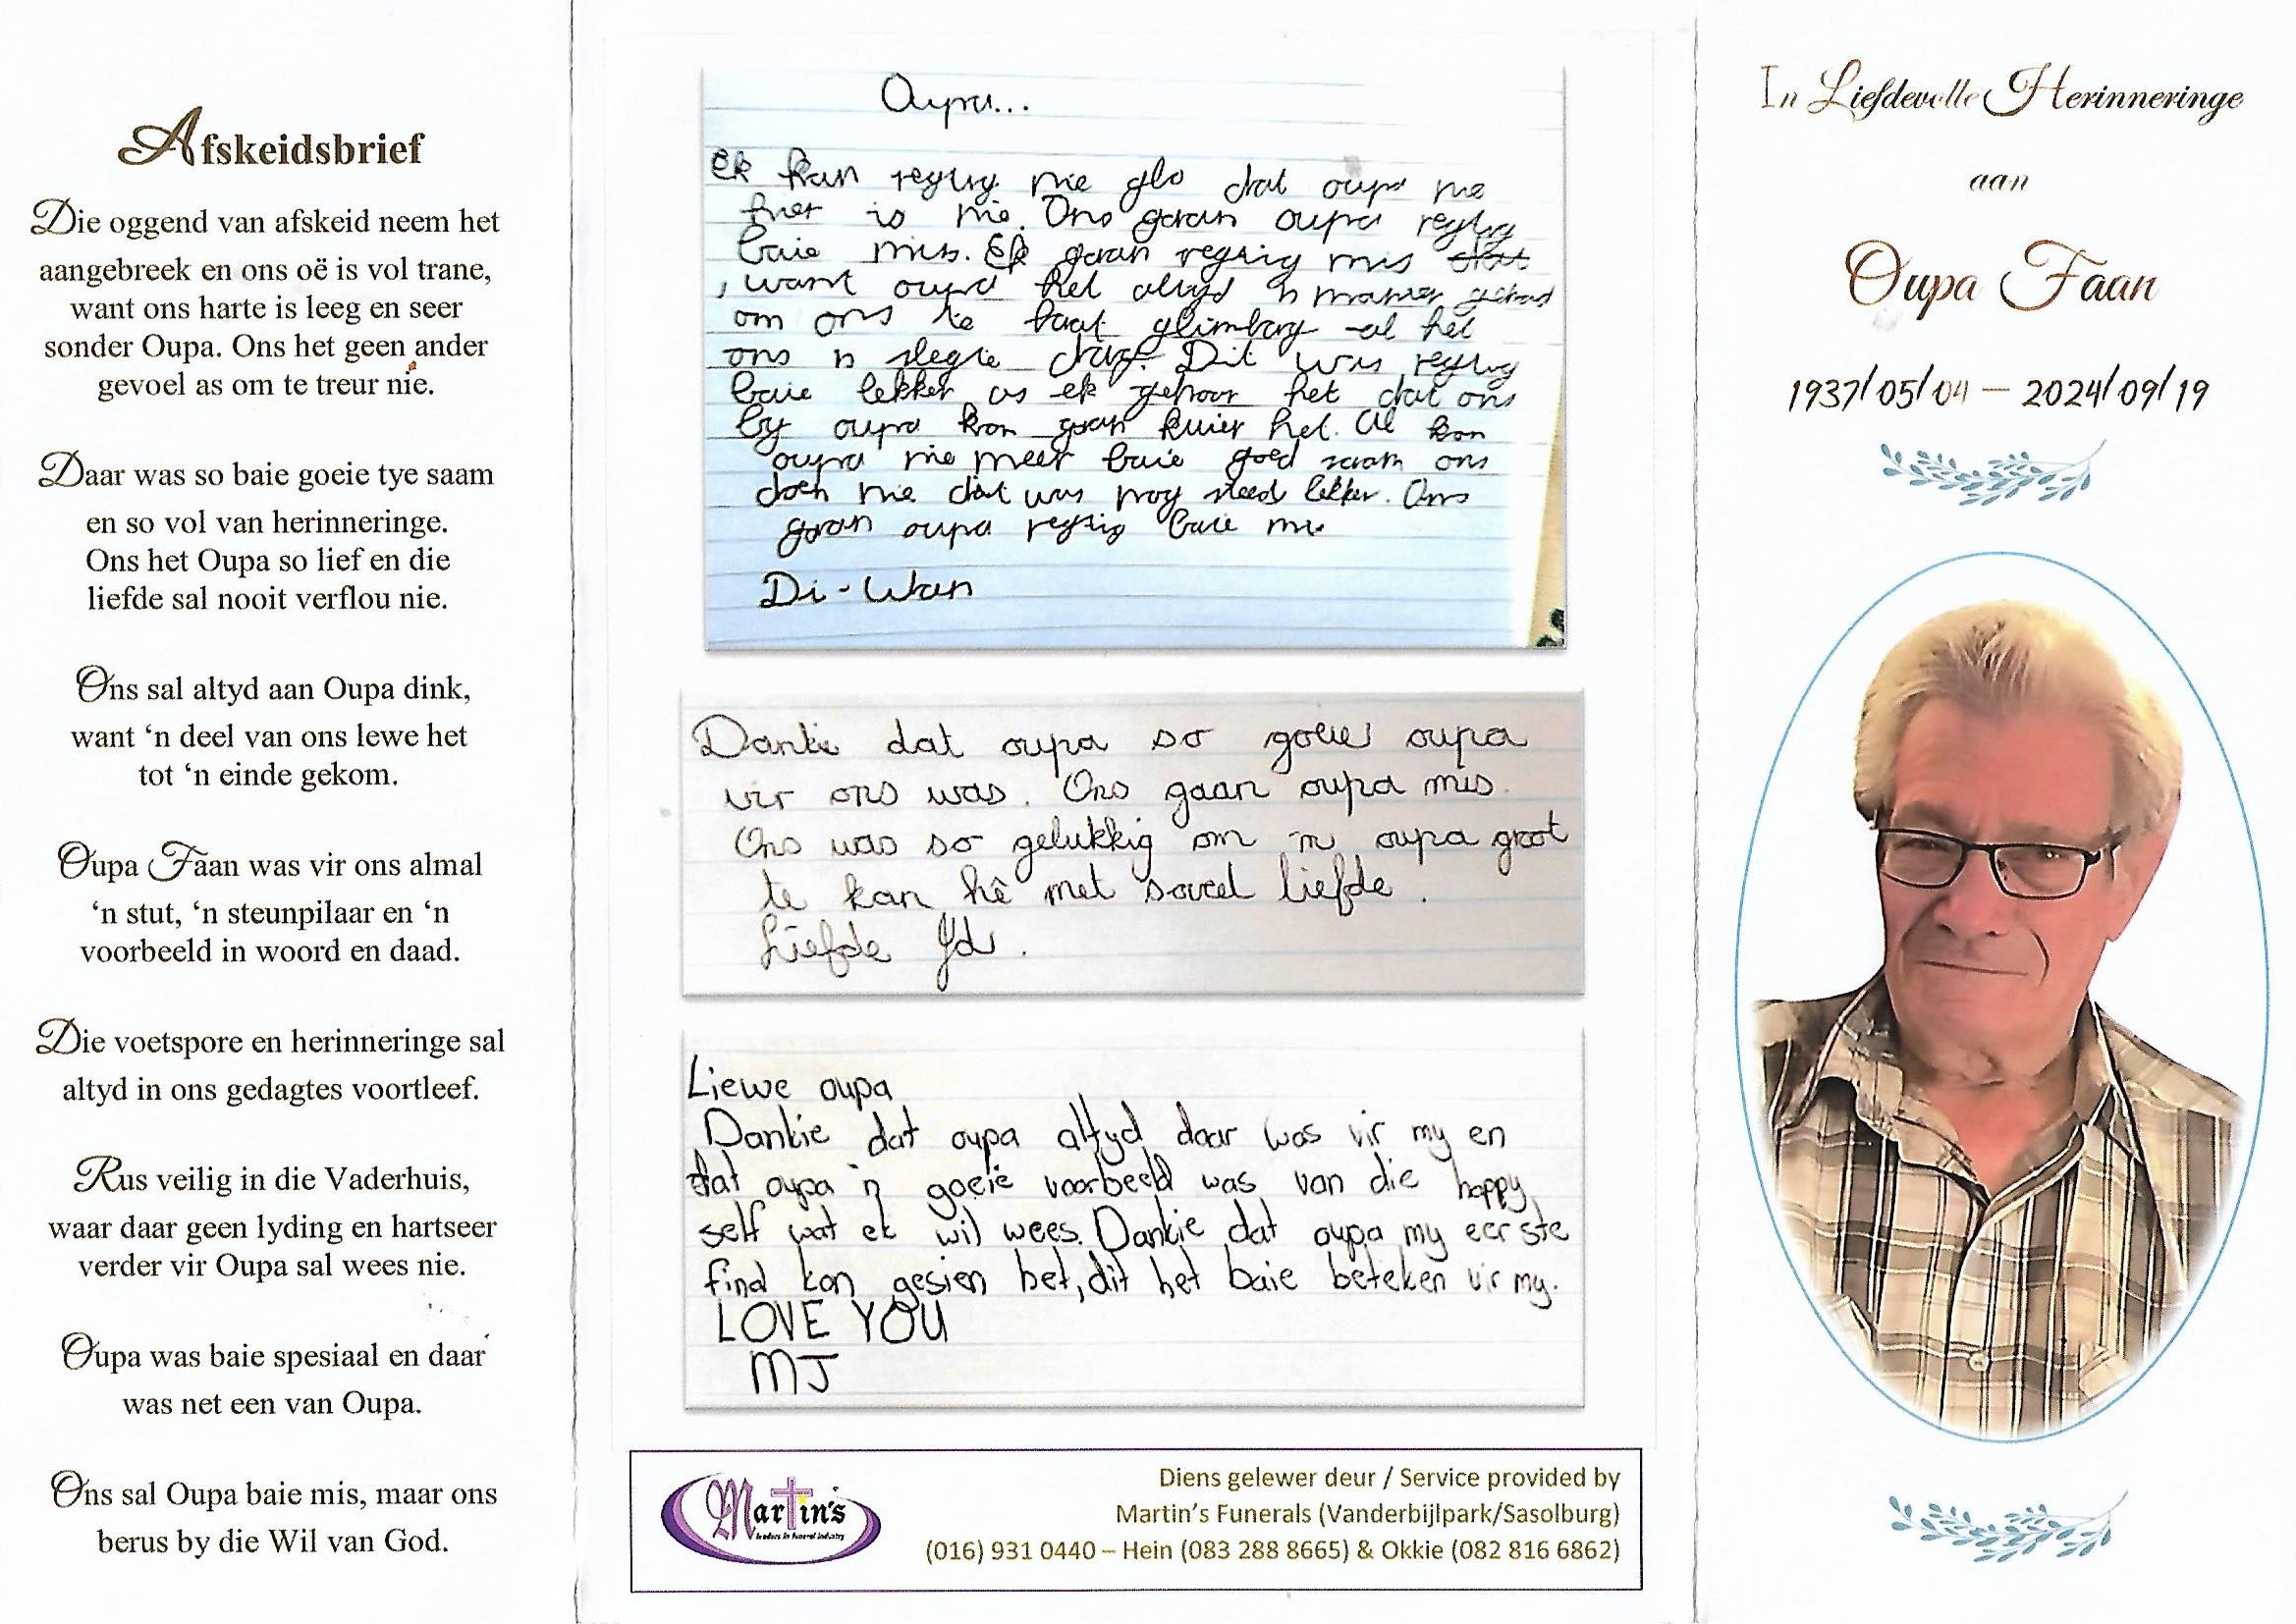 Afskeidsbrief
Die oggend van afskeid neem het
aangebreek en ons oë is vol trane,
want ons harte is leeg en seer
sonder Oupa. Ons het geen ander
gevoel as om te treur nie.
Daar was so baie goeie tye saam
en so vol van herinneringe.
Ons het Oupa so lief en die
liefde sal nooit verflou nie.
Ons sal altyd aan Oupa dink,
want ‘n deel van ons lewe het
tot ‘n einde gekom.
Oupa Faan was vir ons almal
‘n stut, ‘n steunpilaar en ‘n
voorbeeld in woord en daad.
Die voetspore en herinneringe sal
altyd in ons gedagtes voortleef.
Rus veilig in die Vaderhuis,
waar daar geen lyding en hartseer
verder vir Oupa sal wees nie.
Oupa was baie spesiaal en daar
was net een van Oupa.
Ons sal Oupa baie mis, maar ons
berus by die Wil van God.
Oupa...
Ek kan regtig nie glo dat oupa nie
hier is nie. Ons gaan oupa regtig
baie mis. Ek gaan regtig mis dat
, want oupa het altyd 'n manier gehad
om ons te laat glimlag al het
ons 'n slegte dag. Dit was regtig
baie lekker as ek gehoor het dat ons
by oupa kon gaan kuier het. Al kon
oupa nie meer baie goed saam ons
doen nie dat was nog steed lekker. Ons
gaan oupa regtig baie mis
Di-Wan
Dankie dat oupa so goeie oupa
vir ons was. Ons gaan oupa mis.
Ons was so gelukkig om 'n oupa groot
te kan hê met soveel liefde.
Liefde
Liewe oupa
Dankie dat oupa altyd daar was vir my en
dat oupa 'n goeie voorbeeld was van die happy
self wat ek wil wees. Dankie dat oupa my eerste
find kon gesien het, dit het baie beteken vir my.
LOVE YOU
MJ
Martin's
leaders in funeral industry
Diens gelewer deur / Service provided by
Martin’s Funerals (Vanderbijlpark/Sasolburg)
(016) 931 0440 – Hein (083 288 8665) & Okkie (082 816 6862)
In Liefdevolle Herinneringe
aan
Oupa Faan
1937/05/04 – 2024/09/19